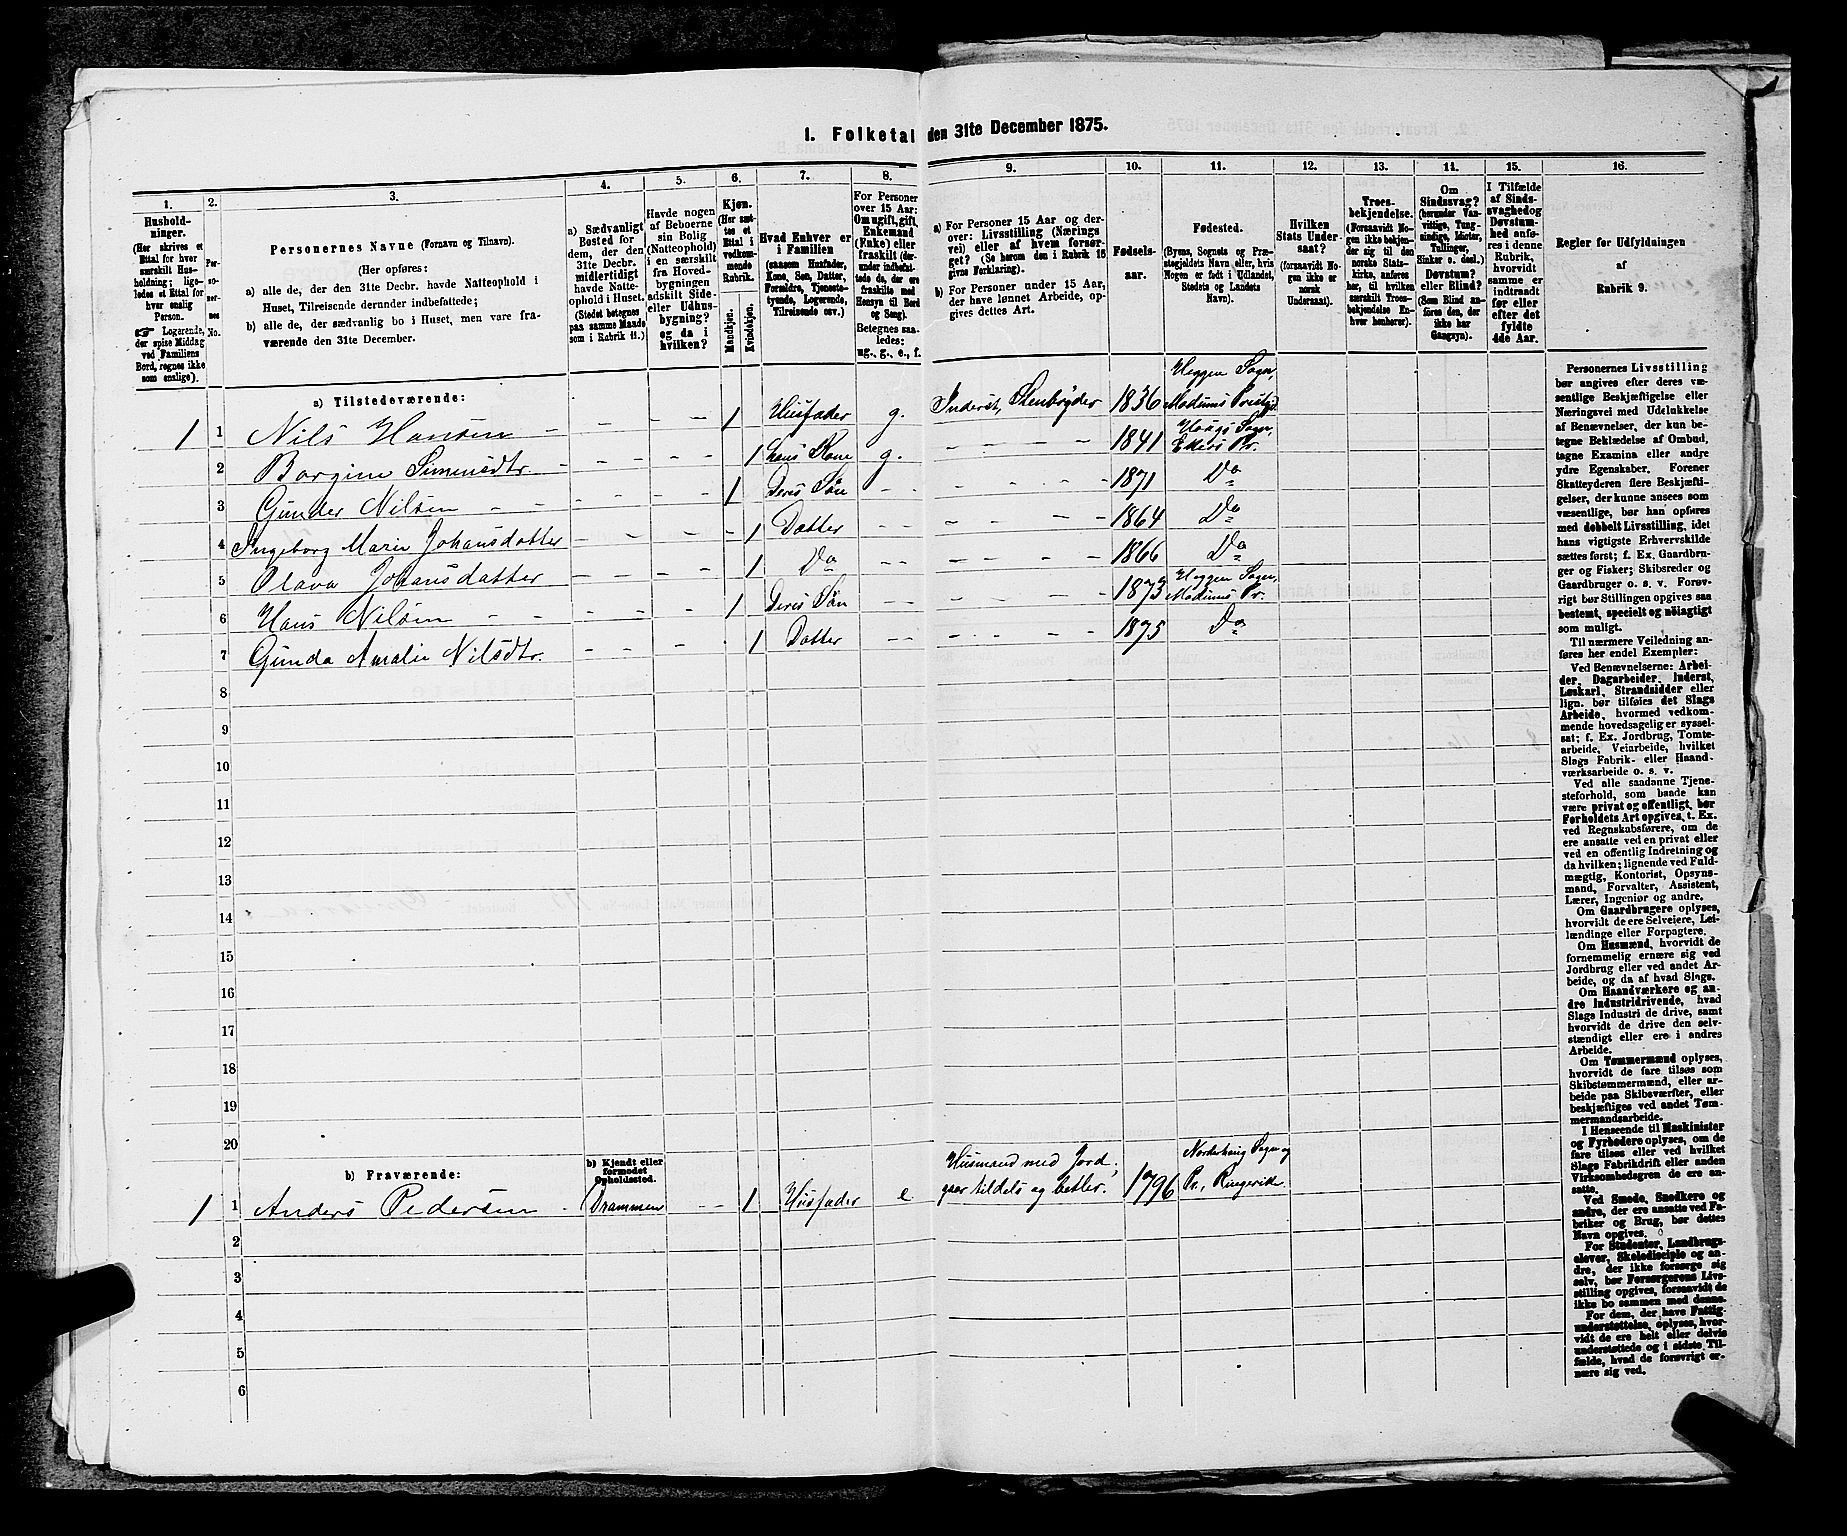 1. Folketal den 31te December 1875.
1. 2. 3. 4. 5. 6. 7. 8. 9. 10. 11. 12. 13. 14. 15. 16.
Hushold-
ninger.
(Her skrives et
Ettal for hver
særskilt Hus-
holdning; lige-
ledes et Ettal for
hver enslig
Person.
☞ Logerende,
der spise Middag
ved Familiens
Bord, regnes ikke
som enslige).
Per-
so-
ner-
nes
No.
Personernes Navne (Fornavn og Tilnavn).
(Her opføres:
a) alle de, der den 31te Decbr. havde Natteophold i
Huset, Tilreisende derunder indbefattede;
b) alle de, der sædvanlig bo i Huset, men vare fra-
værende den 31te December.
a) Sædvanligt
Bosted for
dem, der den
31te Decbr.
midlertidigt
havde Natte-
ophold i Huset.
(Stedet betegnes
paa samme Maade
som i Rubrik 11.)
Havde nogen
af Beboerne
sin Bolig
(Natteophold)
i en særskilt
fra Hoved-
bygningen
adskilt Side-
eller Udhus-
bygning?
og da i
hvilken?
Kjøn.
(Her sæt-
tes et
Ettal i
vedkom-
mende
Rubrik.
Mandkjøn.
Kvindekjøn.
Hvad Enhver er
i Familien
(saasom Husfader,
Kone, Søn, Datter,
Forældre, Tjeneste-
tyende, Logerende,
Tilreisende osv.)
For Personer
over 15 Aar:
Om ugift, gift,
Enkemand
(Enke) eller
fraskilt (der-
under indbefat-
tede de, der ere
fraskilte med
Hensyn til Bord
og Seng).
Betegnes saa-
ledes:
ug., g., e., f.
a) For Personer 15 Aar og der-
over: Livsstilling (Nærings
vei) eller af hvem forsør-
get? (Se herom den i Rubrik 16
givne Forklaring).
b) For Personer under 15 Aar,
der have lønnet Arbeide, op-
gives dettes Art.
Fødsels-
aar.
Fødested.
(Byens, Sognets og Præ-
stegjeldets Navn eller, hvis
Nogen er født i Udlandet,
Stedets og Landets
Navn).
Hvilken
Stats Under-
saat?
(forsaavidt No-
gen ikke er
norsk
Undersaat).
Troes-
bekjendelse.
(Forsaavidt No-
gen ikke bekjen-
der sig til den
norske Stats-
kirke, anføres
her, til hvilken
særskilt Troes-
bekjendelse En-
hver henhører).
Om
Sindssvag?
(herunder Van-
vittige, Tung-
sindige, Idioter,
Tullinger,
Sinker o. desl.)
Døvstum?
eller Blind?
(Som Blind an-
føres den, der
ikke har
Gangsyn).
I Tilfælde
af Sinds-
svaghed og
Døvstum-
hed anfø-
res i denne
Rubrik,
hvorvidt
samme er
indtraadt
før eller
efter det
fyldte
4de Aar.
Regler for Udfyldningen
af
Rubrik 9.
a) Tilstedeværende:
1 1 Nils Hansen - - - - 1 Husfader g. Inderst, Stenbryder 1836 Heggen Sogn, Modums Præstgj.
2 Borgine Simensdtr. - - - - - 1 hans Kone g. - - - - 1841 Haugs Sogn, Ekers Pr.
3 Gunder Nilsen - - - - - - 1 Deres Søn - - - - - - 1871 Do
4 Ingeborg Marie Johansdatter - - - - - 1 Datter - - - - - - 1864 Do
5 Olava Johansdatter - - - - 1 Do - - - - - - 1866 Do
6 Hans Nilsen - - - - - - 1 Deres Søn - - - - - - 1873 Heggen Sogn, Modums Pr.
7 Gunda Amalie Nilsdtr. - - - - 1 Datter - - - - - - 1875 Do
8
9
10
11
12
13
14
15
16
17
18
19
20
b) Fraværende:
b) Kjendt eller
formodet
Opholdssted.
1 1 Anders Pedersen - Drammen - - 1 Husfader e Husmand med Jord, gaar tildels og betler. 1796 Norderhoug Sogn og Pr., Ringerike.
2
3
4
5
6
Personernes Livsstilling
bør angives efter deres væ-
sentlige Beskjæftigelse eller
Næringsvei med Udelukkelse
af Benævnelser, der kun be-
tegne Beklædelse af Ombud,
tagne Examina eller andre
ydre Egenskaber. Forener
Skatteyderen flere Beskjæfti-
gelser, der kunne ansees som
væsentlige, bør han opføres
med dobbelt Livsstilling, idet
hans vigtigste Erhvervskilde
sættes først; f. Ex. Gaardbru-
ger og Fisker; Skibsreder og
Gaardbruger o. s. v. Forøv-
rigt bør Stillingen opgives saa
bestemt, specielt og nøiagtigt
som muligt.
Til nærmere Veiledning an-
føres her endel Exempler:
Ved Benævnelserne: Arbei-
der, Dagarbeider, Inderst,
Løskarl, Strandsidder eller
lign. bør tilføies det Slags
Arbeide, hvormed vedkom-
mende hovedsagelig er syssel-
sat; f. Ex. Jordbrug, Tomte-
arbeide, Veiarbeide, hvilket
Slags Fabrik- eller Haand-
værksarbeide o. s. v.
Ved alle saadanne Tjene-
steforhold, som baade kan
være privat og offentligt, bør
Forholdets Art opgives, t. Ex.
ved Regnskabsførere, om de
ere ansatte ved en privat eller
ved en offentlig Indretning og
da hvilken; lignende ved Fuld-
mægtig, Kontorist, Opsyns-
mand, Forvalter, Assistent,
Lærer, Ingeniør og andre.
Om Gaardbrugere oplyses,
hvorvidt de ere Selveiere, Lei-
lændinge eller Forpagtere.
Om Husmænd, hvorvidt de
fornemmelig ernære sig ved
Jordbrug eller ved andet Ar-
beide, og da af hvad Slags.
Om Haandværkere og an-
dre Industridrivende, hvad
Slags Industri de drive, samt
hvorvidt de drive den selv-
stændigt eller ere i andres
Arbeide.
Om Tømmermænd oplyses,
hvorvidt de fare tilsøs som
Skibstømmermænd, eller ar-
beide paa Skibsværfter, eller
beskjæftiges ved andet Tøm-
mermandsarbeide.
I Henseende til Maskinister
og Fyrbødere oplyses, om de
fare tilsøs eller ved hvilket
Slags Fabrikdrift eller anden
Virksomhedsgren de ere an-
satte.
Ved Smede, Snedkere og
andre, der ere ansatte ved Fa-
briker og Brug, bør dettes
Navn opgives.
For Studenter, Landbrugs-
elever, Skoledisciple og an-
dre, der ikke forsørge sig
selv, bør Forsørgerens Livs-
stilling opgives, forsaavidt de
ikke bo sammen med denne.
For dem, der have Fattig-
understøttelse, oplyses, hvor-
vidt de ere helt eller delvis
understøttede og i sidste Til-
fælde, hvad de forøvrigt er-
nære sig ved.